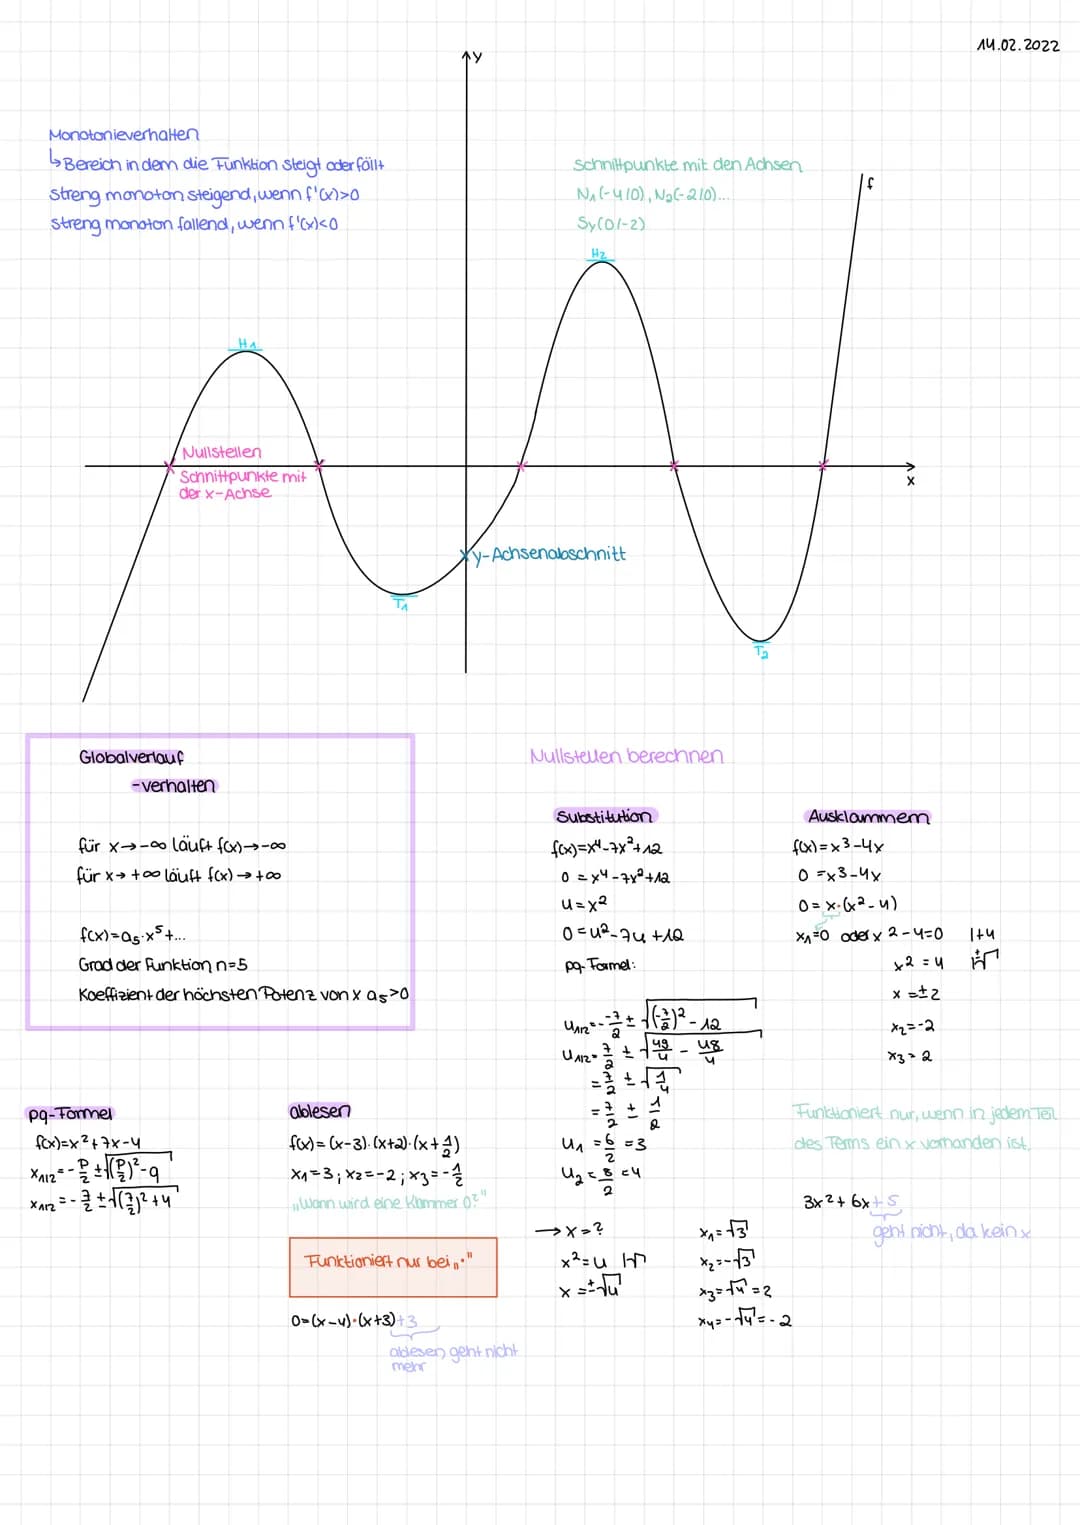 14.02.2022
y
Monotonieverhalten
↳Bereich in dem die Funktion steigt oder fällt
streng monoton steigend, wenn f'(x)>0
streng monoton fallend, wenn f'(x)<0
Schnittpunkte mit den Achsen
N₁(-4/0), N₂(-2/0)...
Sy(0/-2)
f
H₂
H₁
Nullstellen
Schnittpunkte mit
der x-Achse
x
y-Achsenabschnitt
T₁
T₂
Globalverlauf
-verhalten
für x→-∞ läuft f(x)→-∞
für x→+∞ läuft f(x)→+∞
f(x)=a₅·x⁵+...
Grad der Funktion n=5
Koeffizient der höchsten Potenz von x a₅>0
Nullstellen berechnen
Substitution
f(x)=x⁴-7x²+12
0=x⁴-7x²+12
u=x²
0=u²-7u+12
pq-Formel:
u₁/₂=-\frac{-7}{2}±√(\frac{-7}{2})²-12
u₁/₂=\frac{7}{2}±√\frac{49}{4}-\frac{48}{4}
=\frac{7}{2}±√\frac{1}{4}
=\frac{7}{2}±\frac{1}{2}
u₁=\frac{6}{2}=3
u₂=\frac{8}{2}=4
→x=?
x²=u |±√
x=±√u
x₁=√3
x₂=-√3
x₃=√4=2
x₄=-√4=-2
Ausklammern
f(x)=x³-4x
0=x³-4x
0=x·(x²-4)
x₁=0 oder x²-4=0 |+4
x²=4 |±√
x=±2
x₂=-2
x₃=2
Funktioniert nur, wenn in jedem Teil
des Terms ein x vorhanden ist.
3x²+6x+5
geht nicht, da kein x
pq-Formel
f(x)=x²+7x-4
x₁/₂=-\frac{p}{2}±√(\frac{p}{2})²-q
x₁/₂=-\frac{7}{2}±√(\frac{7}{2})²+4
ablesen
f(x)=(x-3)·(x+2)·(x+\frac{1}{2})
x₁=3; x₂=-2; x₃=-\frac{1}{2}
„Wann wird eine Klammer 0?"
Funktioniert nur bei „·"
0=(x-4)·(x+3)+3
ablesen geht nicht
mehr